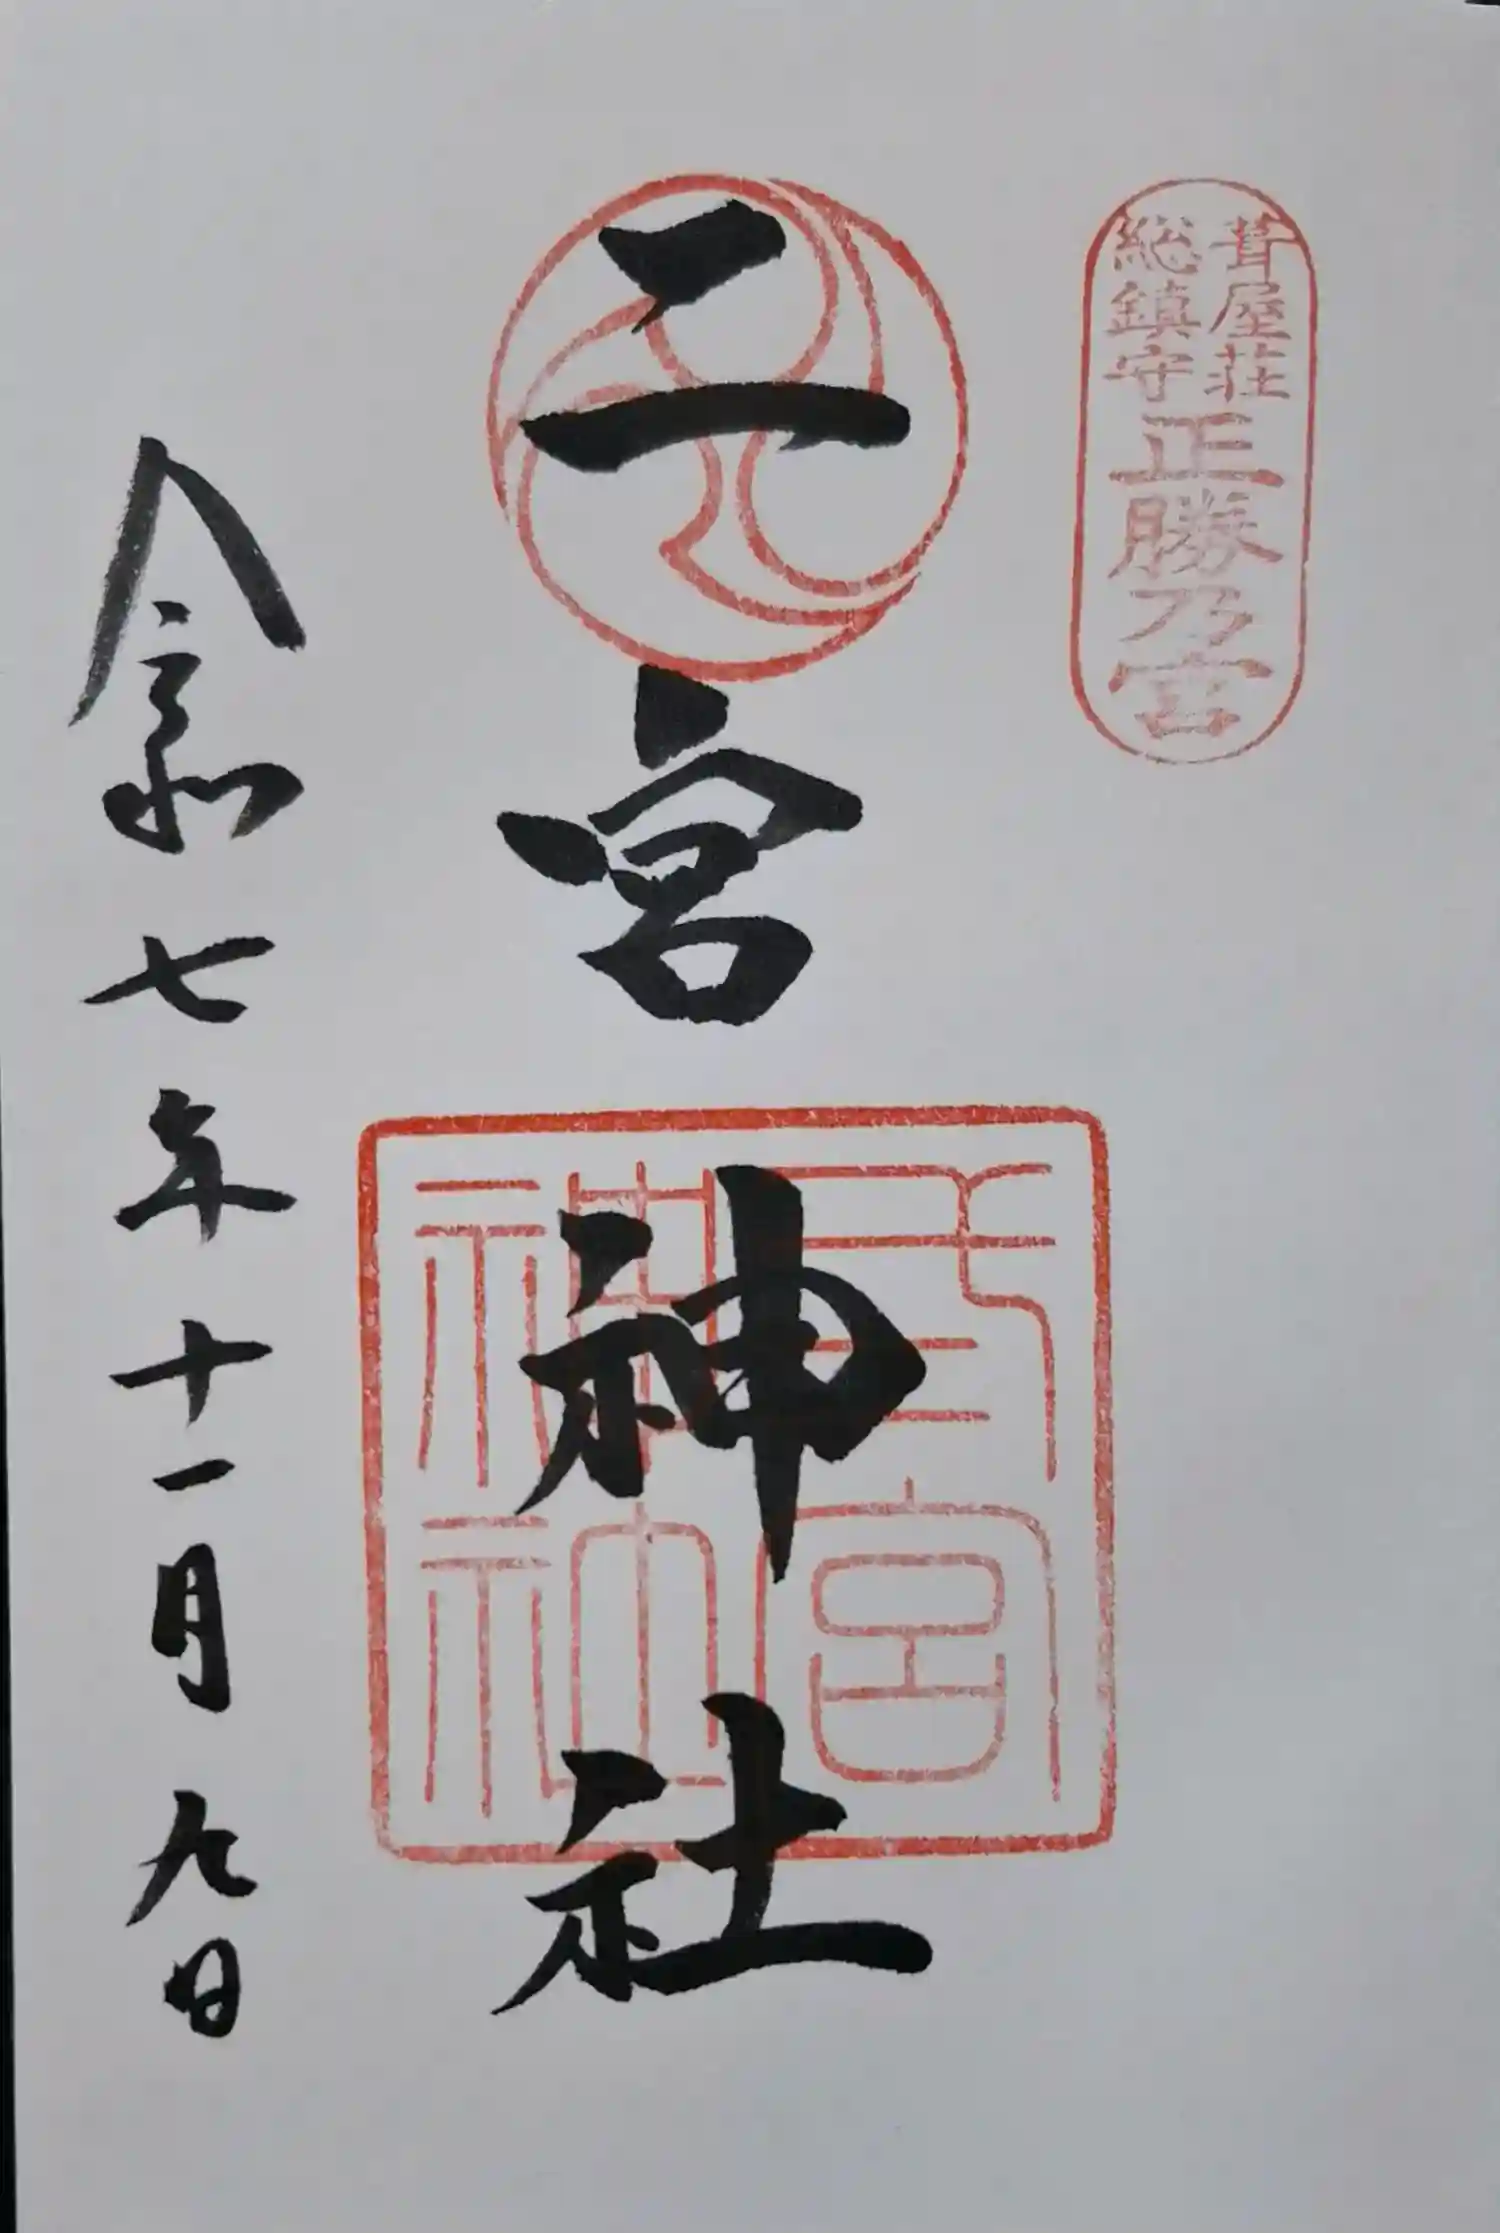 葺屋荘
総鎮守
正勝乃宮
二宮神社
弍宮
神社
令和七年十一月九日